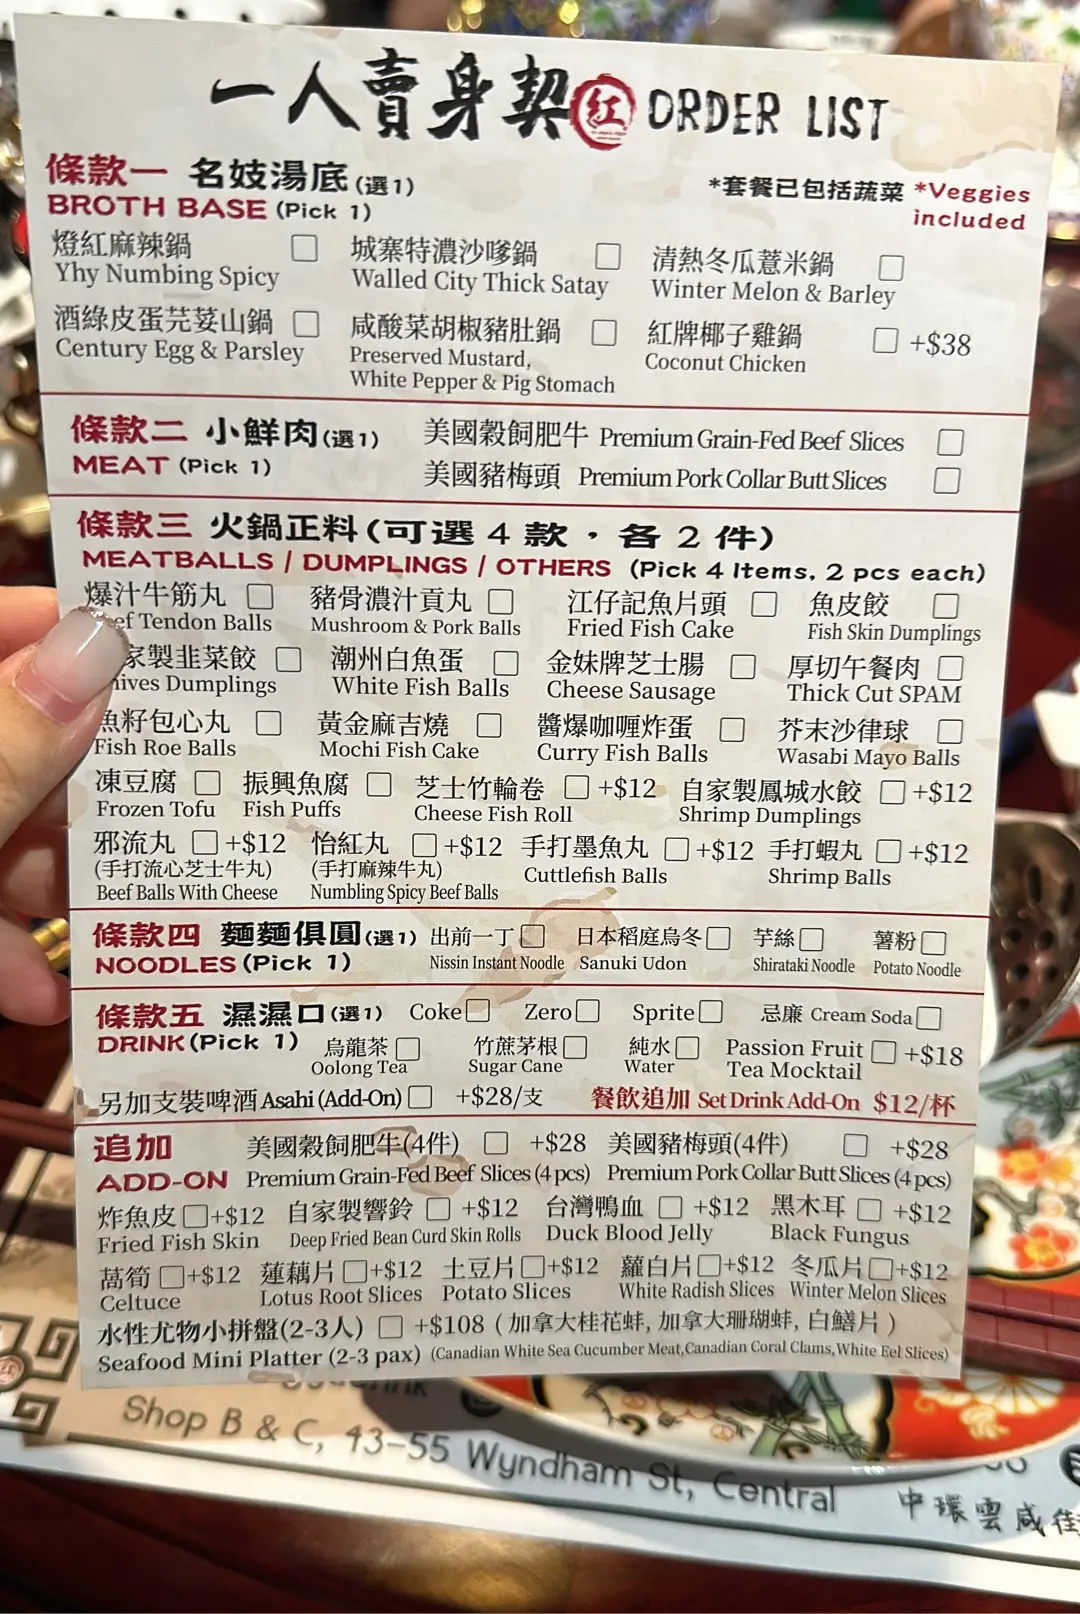 一人賣身契 紅 ORDER LIST
條款一 名妓湯底(選1) *套餐已包括蔬菜 *Veggies included
BROTH BASE (Pick 1)
燈紅麻辣鍋 城寨特濃沙嗲鍋 清熱冬瓜薏米鍋
Yhy Numbing Spicy Walled City Thick Satay Winter Melon & Barley
酒綠皮蛋芫荽山鍋 咸酸菜胡椒豬肚鍋 紅牌椰子雞鍋 +$38
Century Egg & Parsley Preserved Mustard, Coconut Chicken
White Pepper & Pig Stomach
條款二 小鮮肉(選1) 美國穀飼肥牛 Premium Grain-Fed Beef Slices
MEAT (Pick 1) 美國豬梅頭 Premium Pork Collar Butt Slices
條款三 火鍋正料(可選4款，各2件)
MEATBALLS / DUMPLINGS / OTHERS (Pick 4 Items, 2 pcs each)
爆汁牛筋丸 豬骨濃汁貢丸 江仔記魚片頭 魚皮餃
ef Tendon Balls Mushroom & Pork Balls Fried Fish Cake Fish Skin Dumplings
家製韭菜餃 潮州白魚蛋 金妹牌芝士腸 厚切午餐肉
ives Dumplings White Fish Balls Cheese Sausage Thick Cut SPAM
魚籽包心丸 黃金麻吉燒 醬爆咖喱炸蛋 芥末沙律球
Fish Roe Balls Mochi Fish Cake Curry Fish Balls Wasabi Mayo Balls
凍豆腐 振興魚腐 芝士竹輪卷 +$12 自家製鳳城水餃 +$12
Frozen Tofu Fish Puffs Cheese Fish Roll Shrimp Dumplings
邪流丸 +$12 怡紅丸 +$12 手打墨魚丸 +$12 手打蝦丸 +$12
(手打流心芝士牛丸) (手打麻辣牛丸) Cuttlefish Balls Shrimp Balls
Beef Balls With Cheese Numbling Spicy Beef Balls
條款四 麵麵俱圓(選1) 出前一丁 日本稻庭烏冬 芋絲 薯粉
NOODLES (Pick 1) Nissin Instant Noodle Sanuki Udon Shirataki Noodle Potato Noodle
條款五 濕濕口(選1) Coke Zero Sprite 忌廉 Cream Soda
DRINK (Pick 1) 烏龍茶 竹蔗茅根 純水 Passion Fruit +$18
Oolong Tea Sugar Cane Water Tea Mocktail
另加支裝啤酒 Asahi (Add-On) +$28/支 餐飲追加 Set Drink Add-On $12/杯
追加 美國穀飼肥牛(4件) +$28 美國豬梅頭(4件) +$28
ADD-ON Premium Grain-Fed Beef Slices (4 pcs) Premium Pork Collar Butt Slices (4 pcs)
炸魚皮 +$12 自家製響鈴 +$12 台灣鴨血 +$12 黑木耳 +$12
Fried Fish Skin Deep Fried Bean Curd Skin Rolls Duck Blood Jelly Black Fungus
萵筍 +$12 蓮藕片 +$12 土豆片 +$12 蘿白片 +$12 冬瓜片 +$12
Celtuce Lotus Root Slices Potato Slices White Radish Slices Winter Melon Slices
水性尤物小拼盤(2-3人) +$108 (加拿大桂花蚌, 加拿大珊瑚蚌, 白鱔片)
Seafood Mini Platter (2-3 pax) (Canadian White Sea Cucumber Meat, Canadian Coral Clams, White Eel Slices)
Shop B & C, 43-55 Wyndham St, Central
中環雲咸街